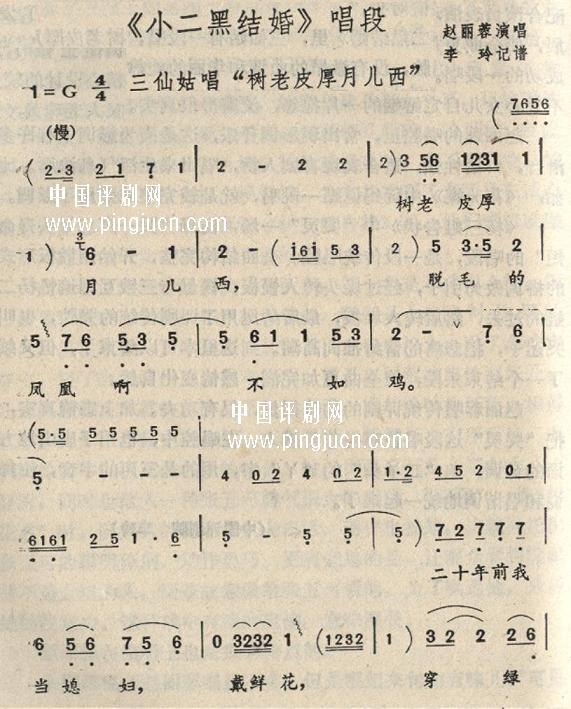 《小二黑结婚》唱段
赵丽蓉演唱
李玲记谱
1=G 4/4
三仙姑唱“树老皮厚月儿西”
(慢)
(7656
(2·3 2 1 7 1 | 2 - 2 2 | 2) 3 56 1231 1 |
树老 皮厚
中国评剧网
www.pingjucn.com
1) 6 · 1 | 5 - - (i6i | 5) 5 3·5 5 |
月 儿 西, 脱毛的
5 76 5 3 3 | 5 61 1 53 | 2 - - 76 |
凤凰 啊 不 如 鸡。
中国评剧网
www.pingjucn.com
(5·5 5 5 5 5 5
5 - - - | 4 02 4 02 | 1 2 4 5 2 01 |
6161 2 1 · 6 | 5 5 5 5 | 5) 7 2 7 7 7 |
二十年前我
6 5 6 7 5 · | 0 3232 1 (1232 | 1) 3 2 2 2 6 |
当媳 妇, 戴鲜花, 穿 绿